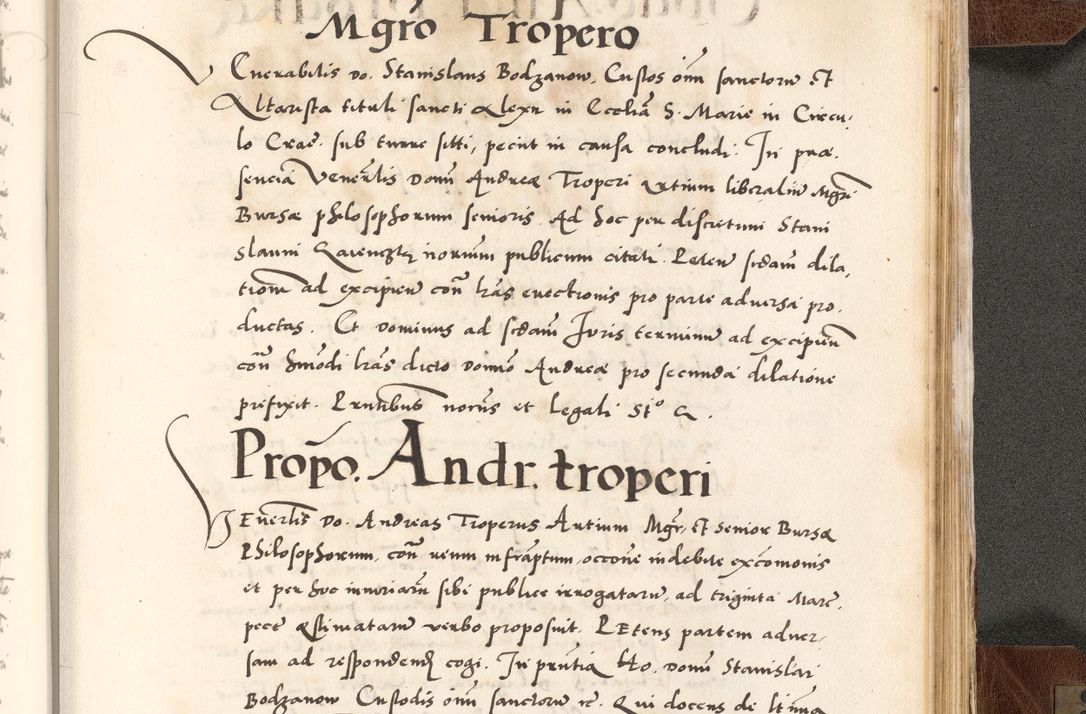 Mgro Tropero
Venerabilis Do. Stanislaus Bodzanow, Custos omm sanctoru et
Altarista tituli sancti Alexii in Ecclia S. Marie in Circu,
lo Crac. sub turre siti, petiit in causa concludi. In præ,
sencia Venerlis Domi Andreæ Troperi artium liberaliu Mgri
Bursæ philosophorum senioris. Ad hoc per discretum Stani
slaum notarium publicum citati. Peten scdam dila,
tionem ad excipien con lras evectionis pro parte adversa pro,
ductas. Et Dominus ad scdam Juris terminu ad excipiendum
con hmodi lras dicto domino Andreæ pro secunda dilatione
prefixit. Prntibus notriis et legali Sto
Propo. Andr. troperi
Venerlis Do. Andreas Troperus Artium Mgr. et senior Bursæ
Philosophorum, con reum infraptum, occone indebite excomonis
et per hoc iniuriaru sibi publice irrogataru, ad triginta Marc.
pecc æstimataru verbo proposuit. Petens partem adver,
sam ad respondend cogi. In prntia Do. Domi Stanislai
Bodzanow Custodis omm sanctoru rc. Qui docens de